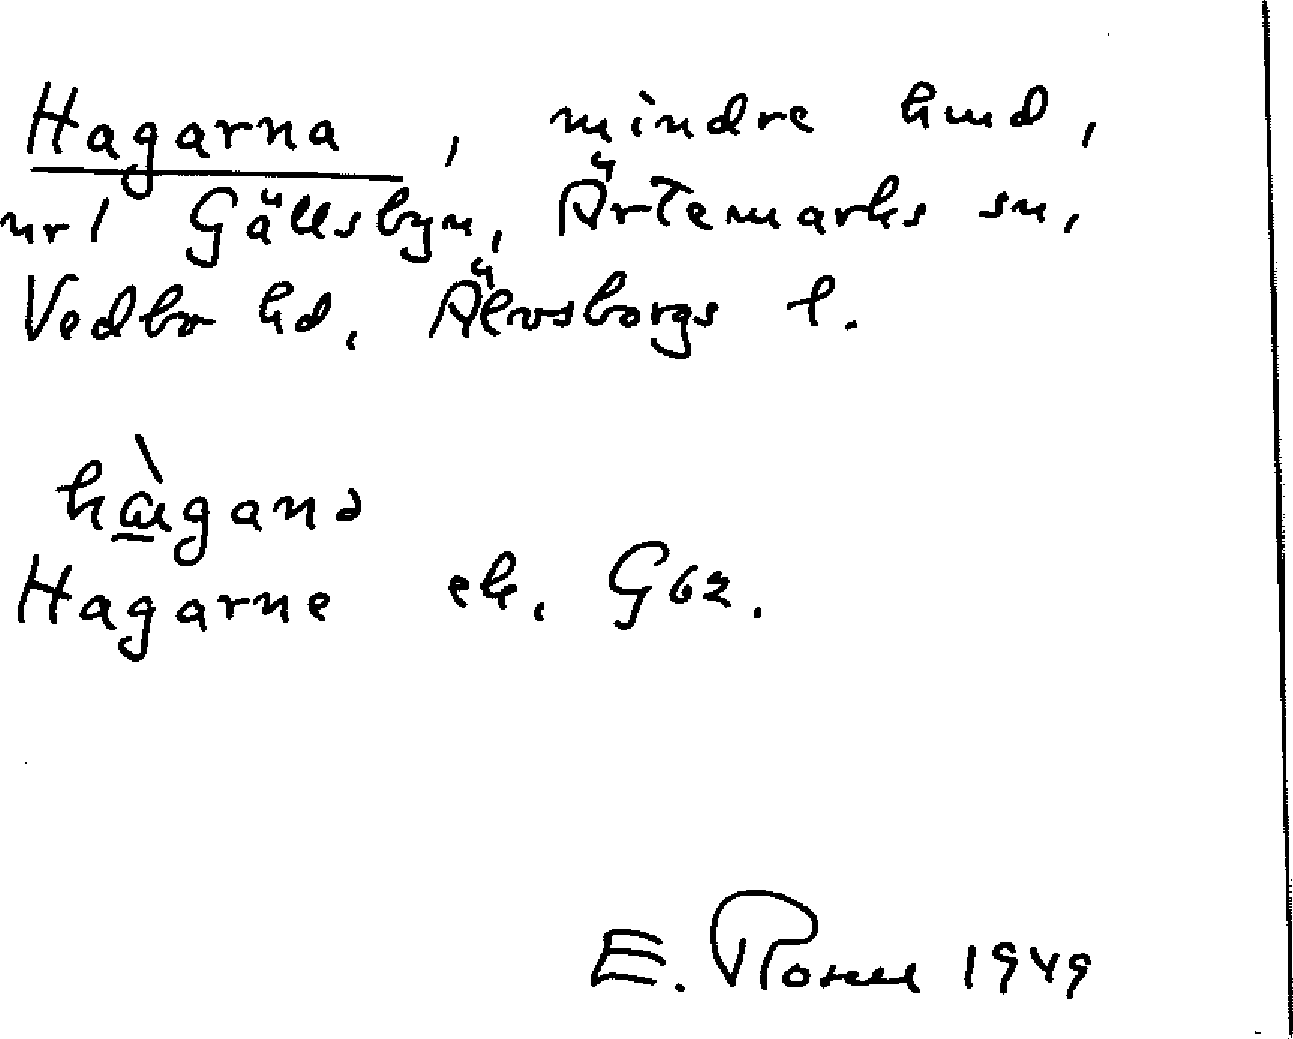 Hagarna, mindre hmd,
nr 1 Gällsbyn, Ärtemarks sn,
Vedbo hd, Älvsborgs l.
hɑ̀gana
Hagarne ek. G62.
E. Rosell 1949